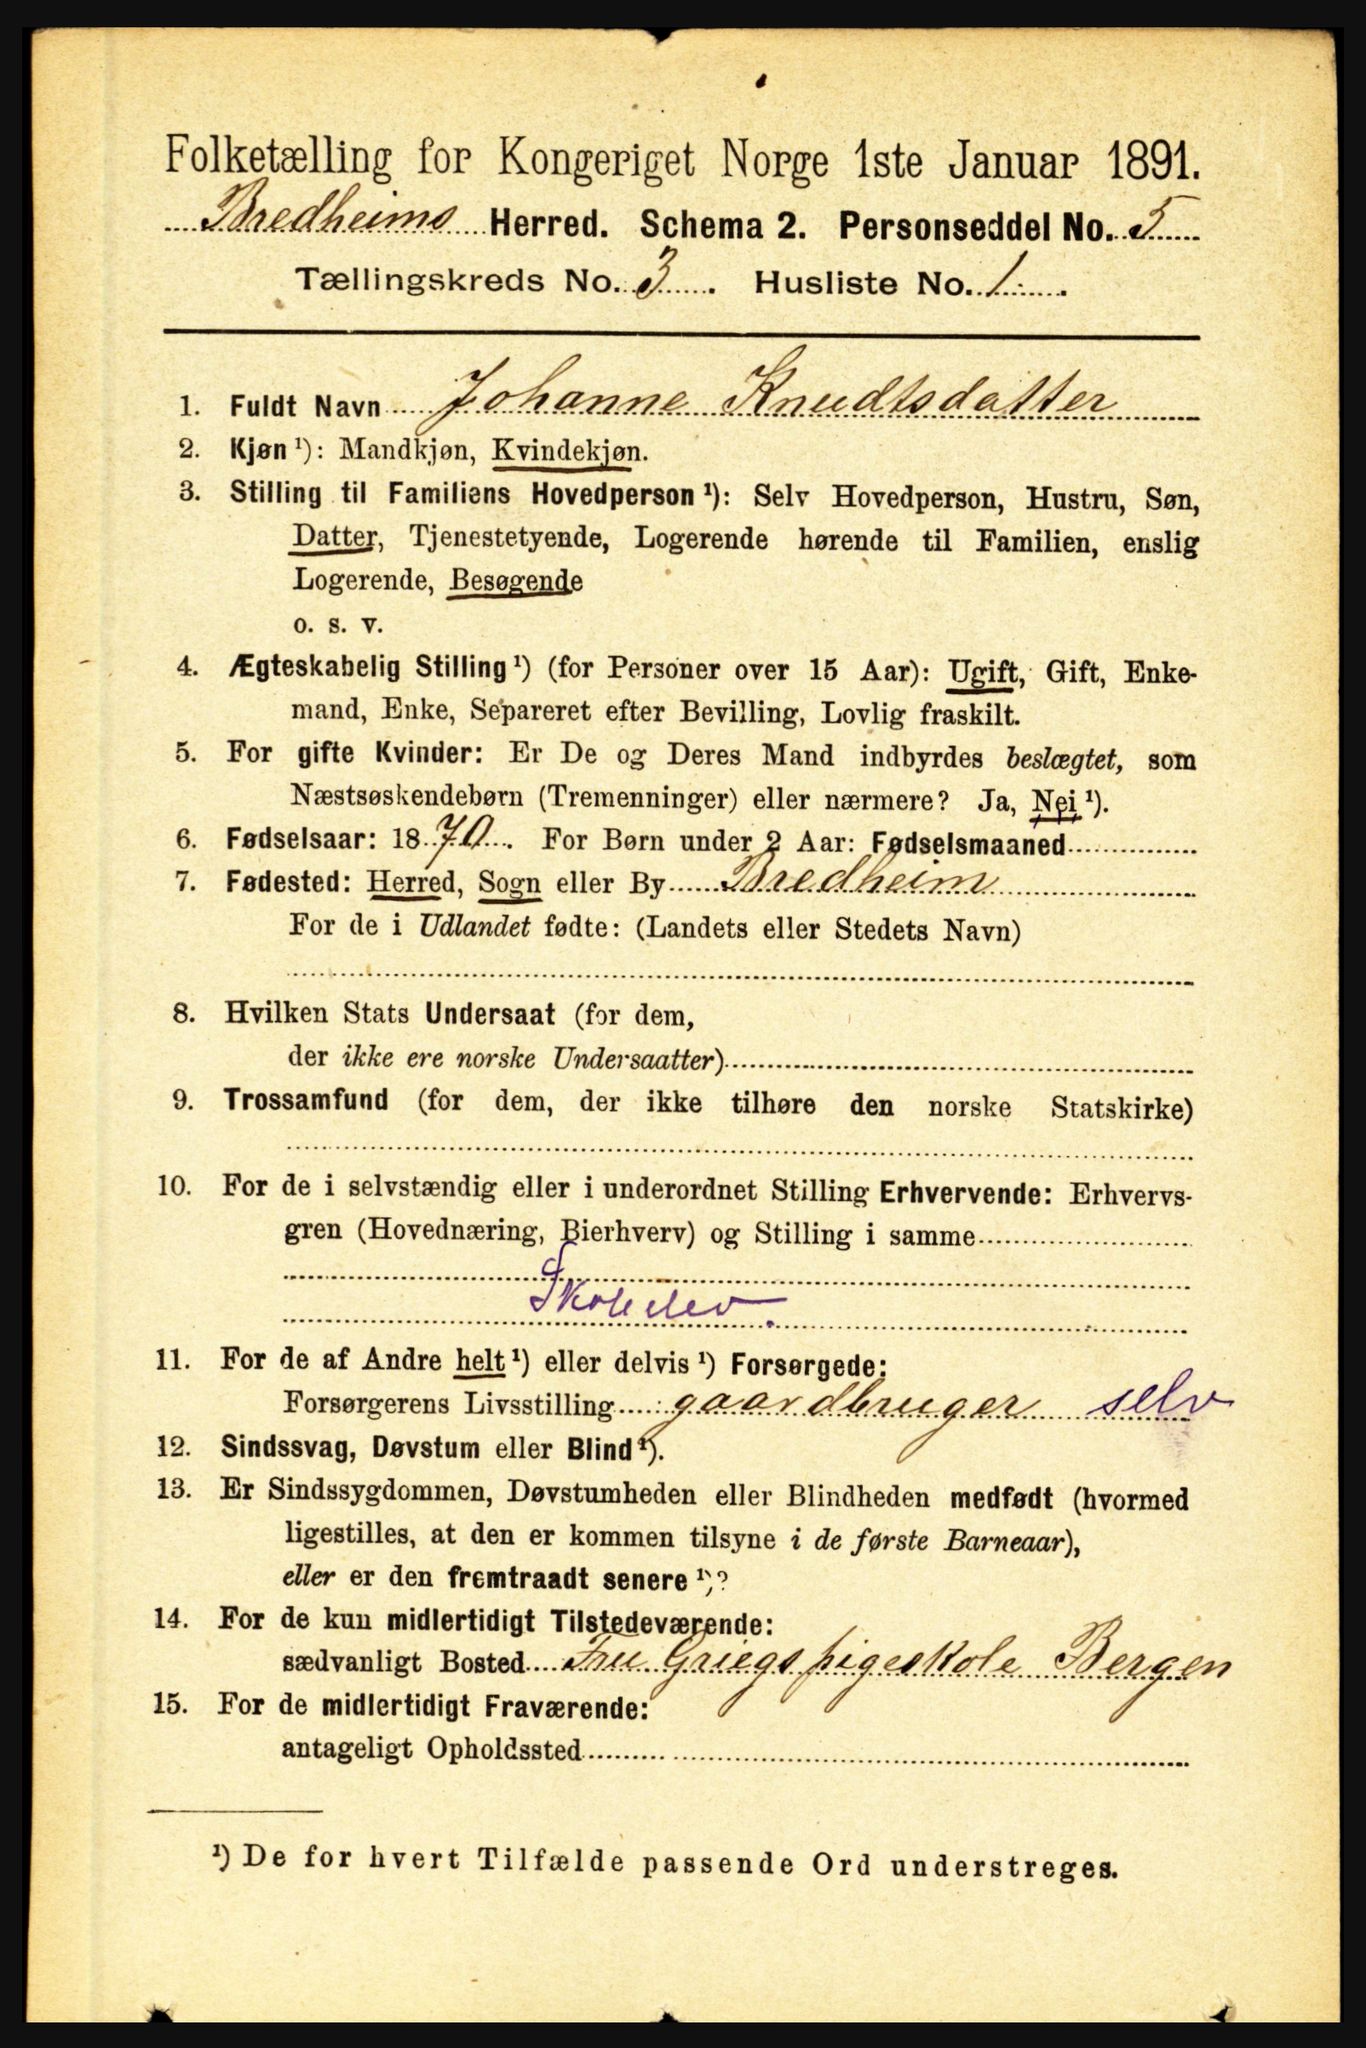 Folketælling for Kongeriget Norge 1ste Januar 1891.
Bredheims Herred. Schema 2. Personseddel No. 5
Tællingskreds No. 3. Husliste No. 1.
1. Fuldt Navn Johanne Knudtsdatter
2. Kjøn ¹): Mandkjøn, Kvindekjøn.
3. Stilling til Familiens Hovedperson ¹): Selv Hovedperson, Hustru, Søn,
Datter, Tjenestetyende, Logerende hørende til Familien, enslig
Logerende, Besøgende
o. s. v.
4. Ægteskabelig Stilling ¹) (for Personer over 15 Aar): Ugift, Gift, Enke-
mand, Enke, Separeret efter Bevilling, Lovlig fraskilt.
5. For gifte Kvinder: Er De og Deres Mand indbyrdes beslægtet, som
Næstsøskendebørn (Tremenninger) eller nærmere? Ja, Nei ¹).
6. Fødselsaar: 1870. For Børn under 2 Aar: Fødselsmaaned
7. Fødested: Herred, Sogn eller By Bredheim
For de i Udlandet fødte: (Landets eller Stedets Navn)
8. Hvilken Stats Undersaat (for dem,
der ikke ere norske Undersaatter)
9. Trossamfund (for dem, der ikke tilhøre den norske Statskirke)
10. For de i selvstændig eller i underordnet Stilling Erhvervende: Erhvervs-
gren (Hovednæring, Bierhverv) og Stilling i samme
Skoleelev.
11. For de af Andre helt ¹) eller delvis ¹) Forsørgede:
Forsørgerens Livsstilling gaardbruger selv
12. Sindssvag, Døvstum eller Blind ¹).
13. Er Sindssygdommen, Døvstumheden eller Blindheden medfødt (hvormed
ligestilles, at den er kommen tilsyne i de første Barneaar),
eller er den fremtraadt senere ¹)?
14. For de kun midlertidigt Tilstedeværende:
sædvanligt Bosted Fru Griegs pigeskole Bergen
15. For de midlertidigt Fraværende:
antageligt Opholdssted
¹) De for hvert Tilfælde passende Ord understreges.